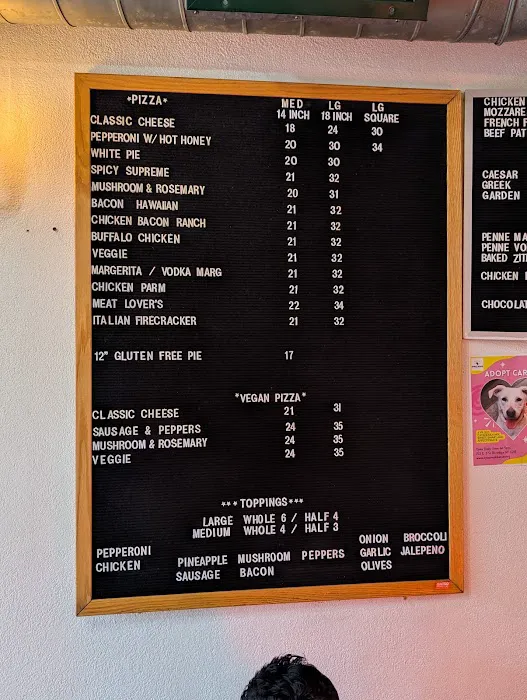 *PIZZA*
MED LG LG
14 INCH 18 INCH SQUARE
CLASSIC CHEESE 18 24 30
PEPPERONI W/ HOT HONEY 20 30 34
WHITE PIE 20 30
SPICY SUPREME 21 32
MUSHROOM & ROSEMARY 20 31
BACON HAWAIIAN 21 32
CHICKEN BACON RANCH 21 32
BUFFALO CHICKEN 21 32
VEGGIE 21 32
MARGERITA / VODKA MARG 21 32
CHICKEN PARM 21 32
MEAT LOVER'S 22 34
ITALIAN FIRECRACKER 21 32
12" GLUTEN FREE PIE 17
*VEGAN PIZZA*
CLASSIC CHEESE 21 31
SAUSAGE & PEPPERS 24 35
MUSHROOM & ROSEMARY 24 35
VEGGIE 24 35
***TOPPINGS***
LARGE WHOLE 6 / HALF 4
MEDIUM WHOLE 4 / HALF 3
PEPPERONI
CHICKEN
PINEAPPLE MUSHROOM PEPPERS
SAUSAGE BACON
ONION BROCCOLI
GARLIC JALEPENO
OLIVES
CHICKEN
MOZZARE
FRENCH F
BEEF PAT
CAESAR
GREEK
GARDEN
PENNE MA
PENNE VO
BAKED ZITI
CHICKEN
CHOCOLAT
ADOPT CAR